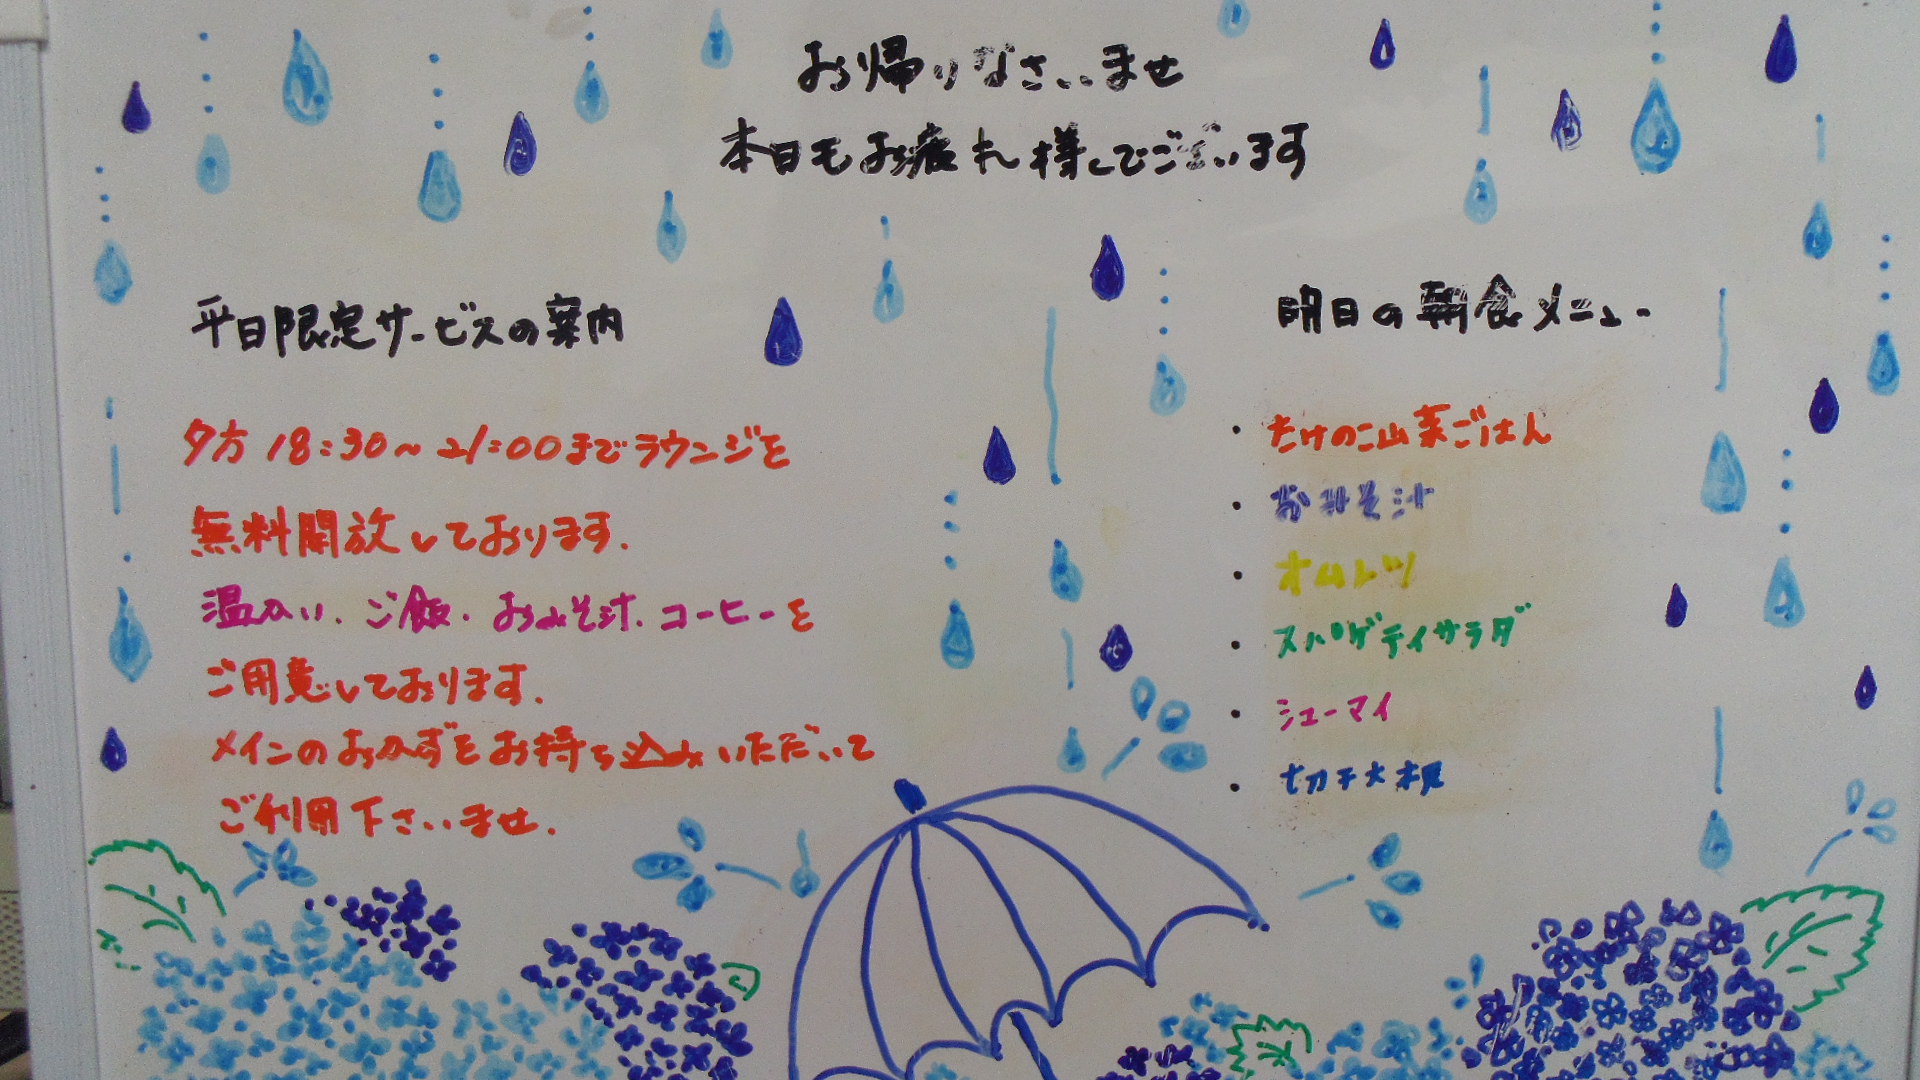 お帰りなさいませ
本日もお疲れ様でございます
平日限定サービスの案内
夕方 18:30~21:00までラウンジを
無料開放しております.
温かい、ご飯・おみそ汁.コーヒーを
ご用意しております.
メインのおかずをお持ち込みいただいて
ご利用下さいませ.
明日の朝食メニュー
・たけのこ山菜ごはん
・おみそ汁
・オムレツ
・スパゲティサラダ
・シューマイ
・切干大根